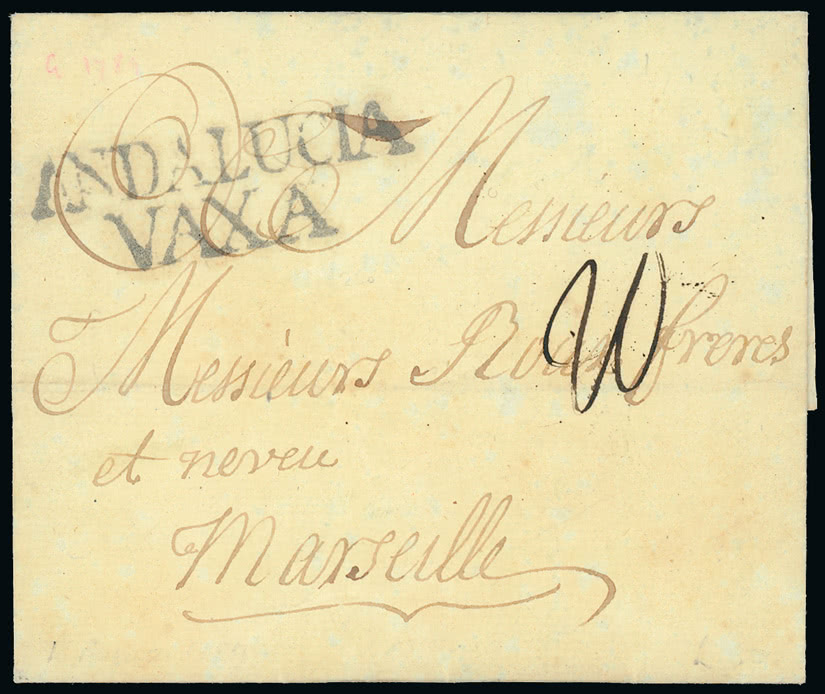 ANDALUCIA
VAXA
Messieurs
Messieurs Roux freres
et neveu
Marseille